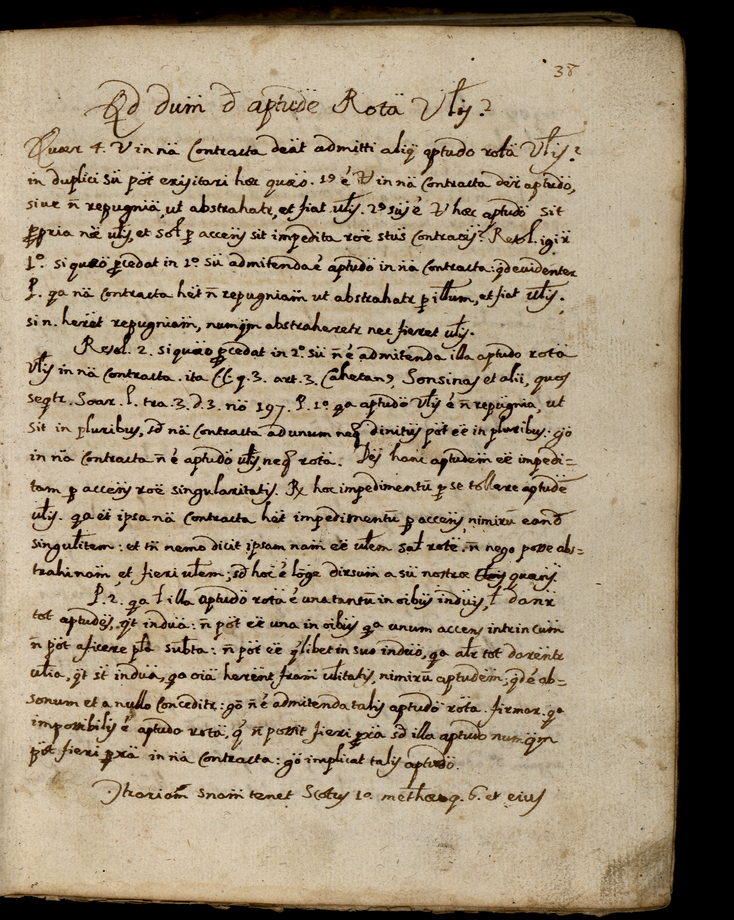 38
Qd dum̃ đ aptude Rota Vlis?
Quær 4. V in nã Contracta deat admitti aliq̃ aptudo rota Vlis?
in duplici su pot exsitari hæc quæo. 1º é V in nã Contracta det aptudo,
siue ñ repugnia, ut abstrahatr, et fiat ulis. 2º sus é V hæc aptudo sit
ppria næ ulis, et sol p accens sit impedita roe stus Contractis? Resol. igir
1º. si quæo pcedat in 1º su admitenda é aptudo in nã contracta: qd euidenter
P. qa nã contracta het ñ repugniam ut abstrahatr p illum, et fiat ulis.
si n. heret repugniam, numqm abstraheretr nec fieret ulis.
Resol. 2. si quæo pcedat in 2º su ñ é admitenda illa aptudo rota
Vlis in nã contracta. ita CC. q. 3. art. 3. Cahetan9, Sonsinas et alii, quos
seqtr. Soar. l. tra. 3. d. 3. no 197. P. 1º qa aptudo Vlis é ñ repugnia, ut
sit in pluribus, sd nã Contracta ad unum neq dinitus pot eé in pluribus: go
in nã contracta ñ é aptudo ulis, neq rota. Des hanc aptudem eé impedi=
tam p accens roe singularitatis. Rx hoc impedimentu p se tollere aptude
ulis. qa et ipsa nã contracta het impedimentu p accens, nimiru eand
singulitem: et tñ nemo dicit ipsam nam eé ulem sal rote. ñ nego posse abs=
trahi nam et fieri ulem; sd hoc é loge dirsum a su nostræ quæis.
P. 2. qa l illa aptudo rota é una tantu in oibus induis, l dant
tot aptudes, qt indua: ñ pot eé una in oibus qa unum accens intrincum
ñ pot aficere pla subta: ñ pot eé qlibet in suo induo, qa alr tot darentr
ulia, qt st indua, qa oia herent fram ulitatis, nimiru aptudem; qd é ab=
sonum et a nullo conceditr: go ñ é admitenda talis aptudo rota. firmar. qa
impossibilis é aptudo rota, q ñ possit fieri pxa sd illa aptudo numqm
pot fieri pxa in nã contracta: go implicat talis aptudo.
Ctrariam snam tenet Scotus 1º methæ q. 6. et eius